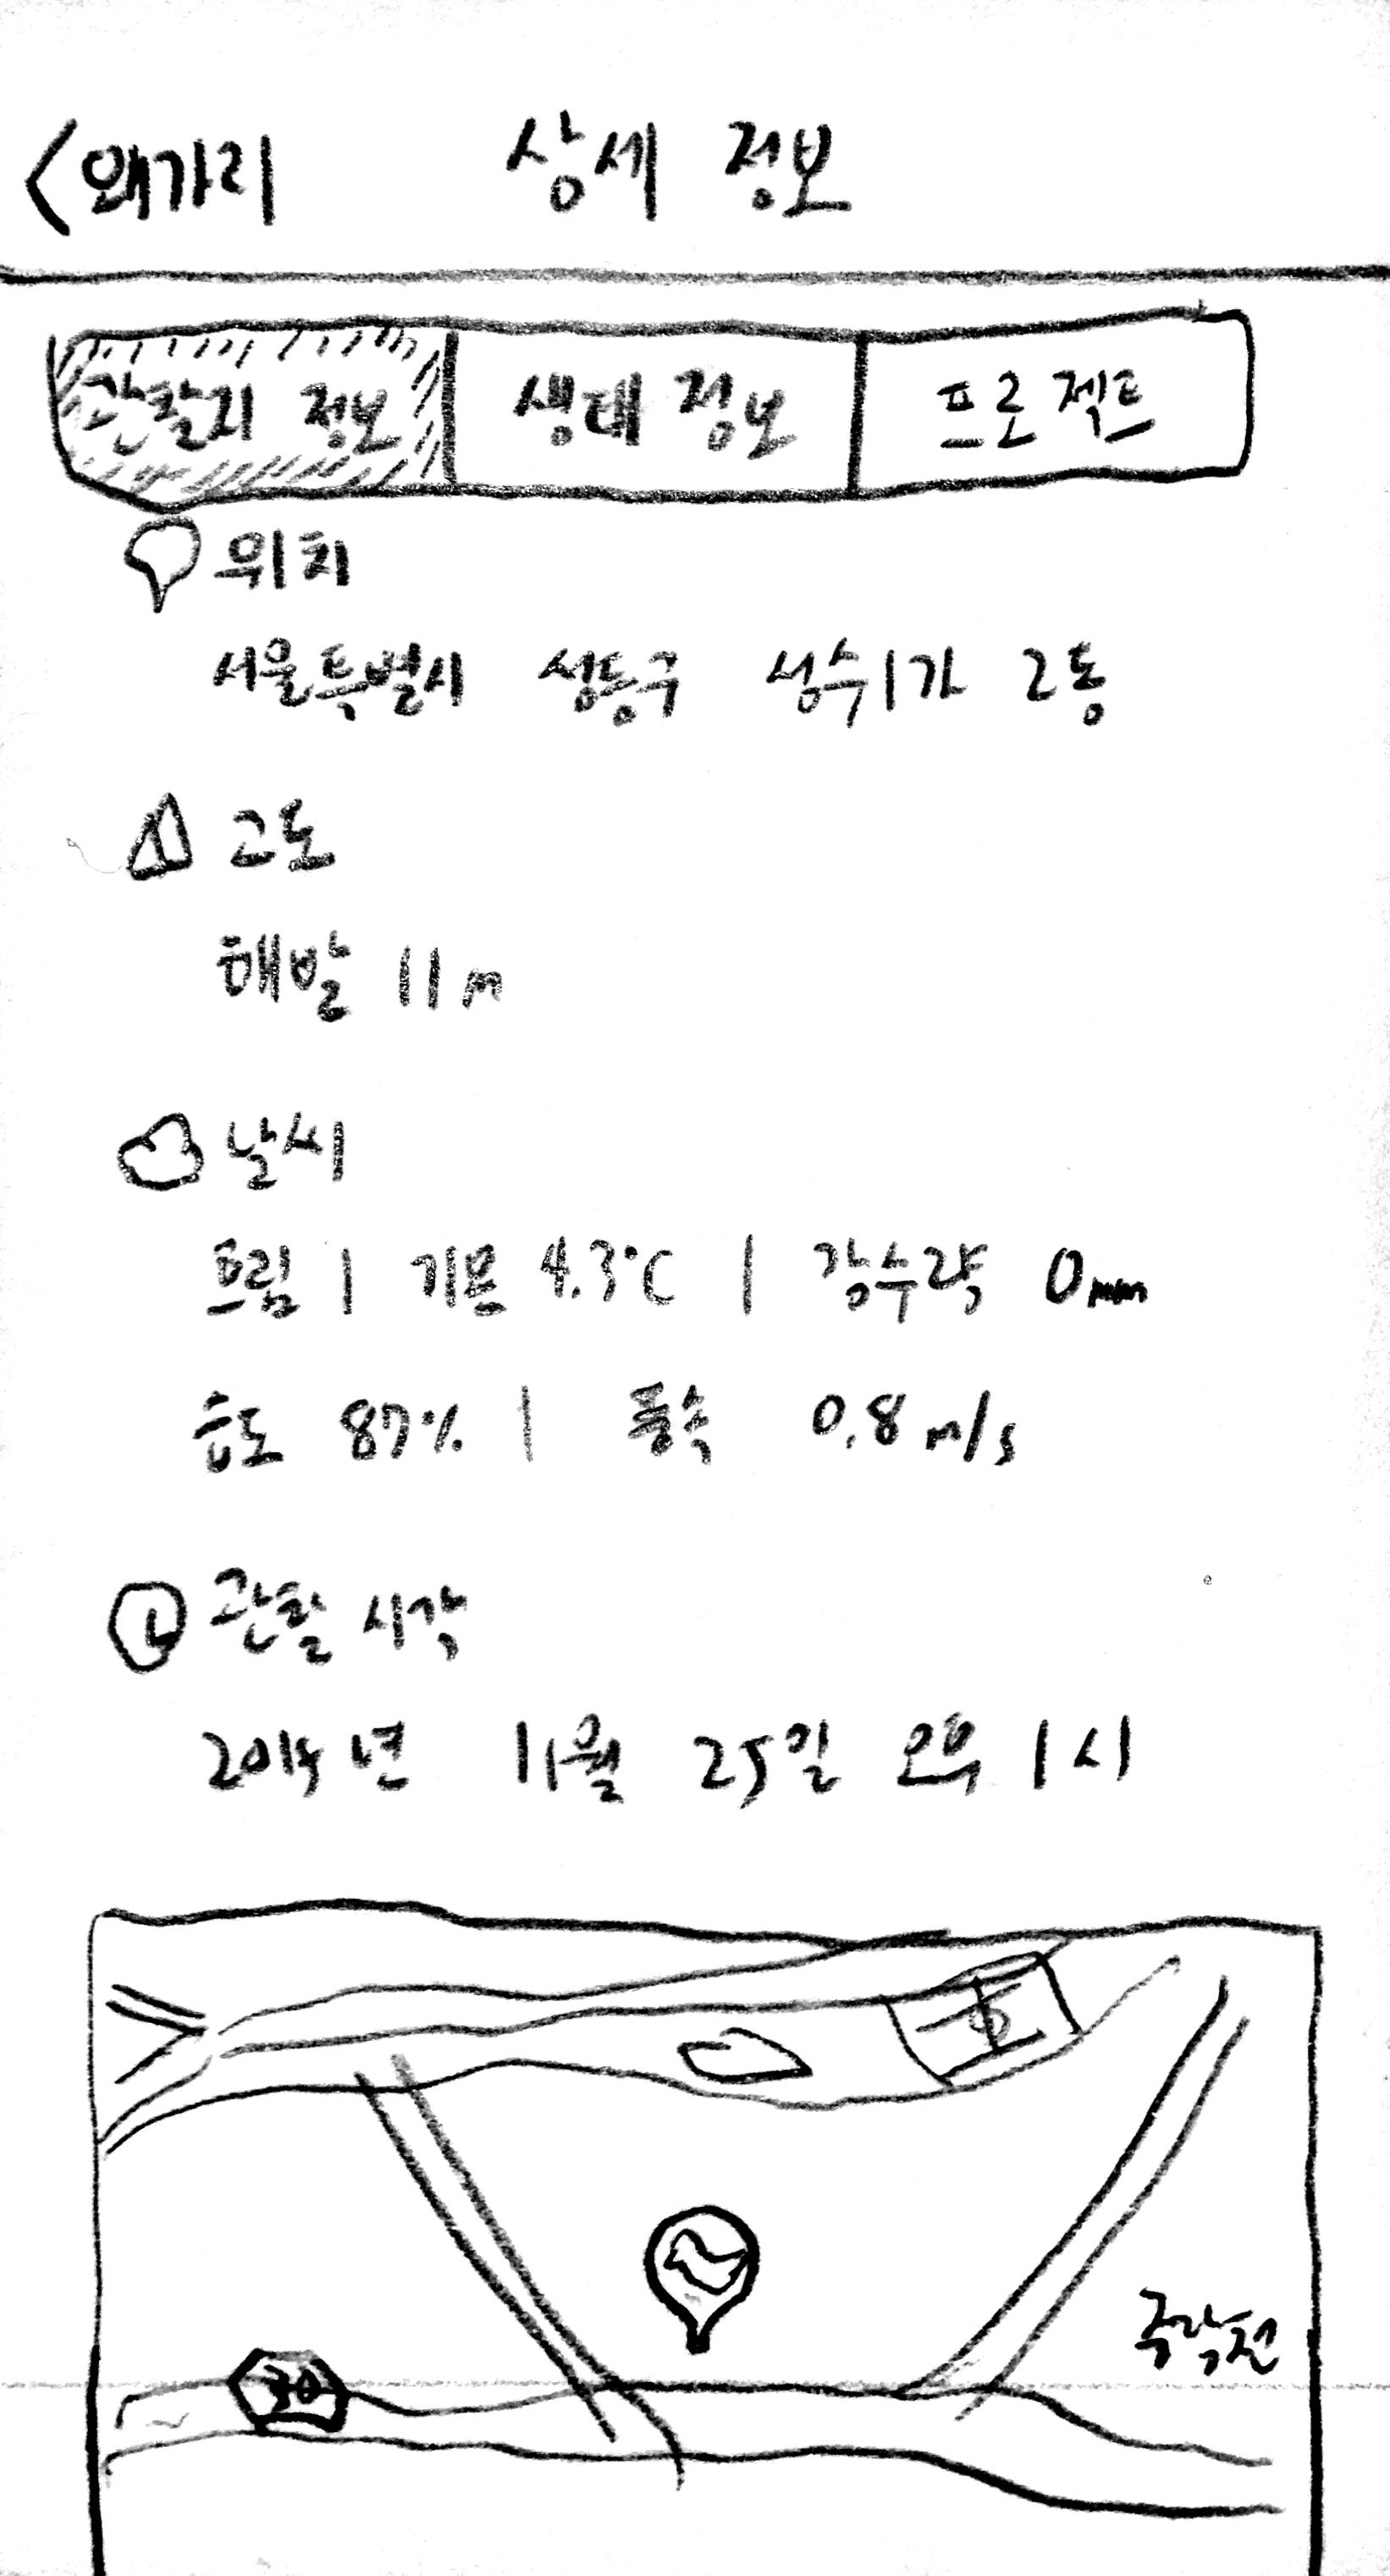 <왜가리 상세 정보
관찰지 정보 생태 정보 프로젝트
위치
서울특별시 성동구 성수1가 2동
고도
해발 11m
날씨
흐림 | 기온 4.3°C | 강수량 0mm
습도 87% | 풍속 0.8m/s
관찰 시각
2014년 11월 25일 오후 1시
극락전
30